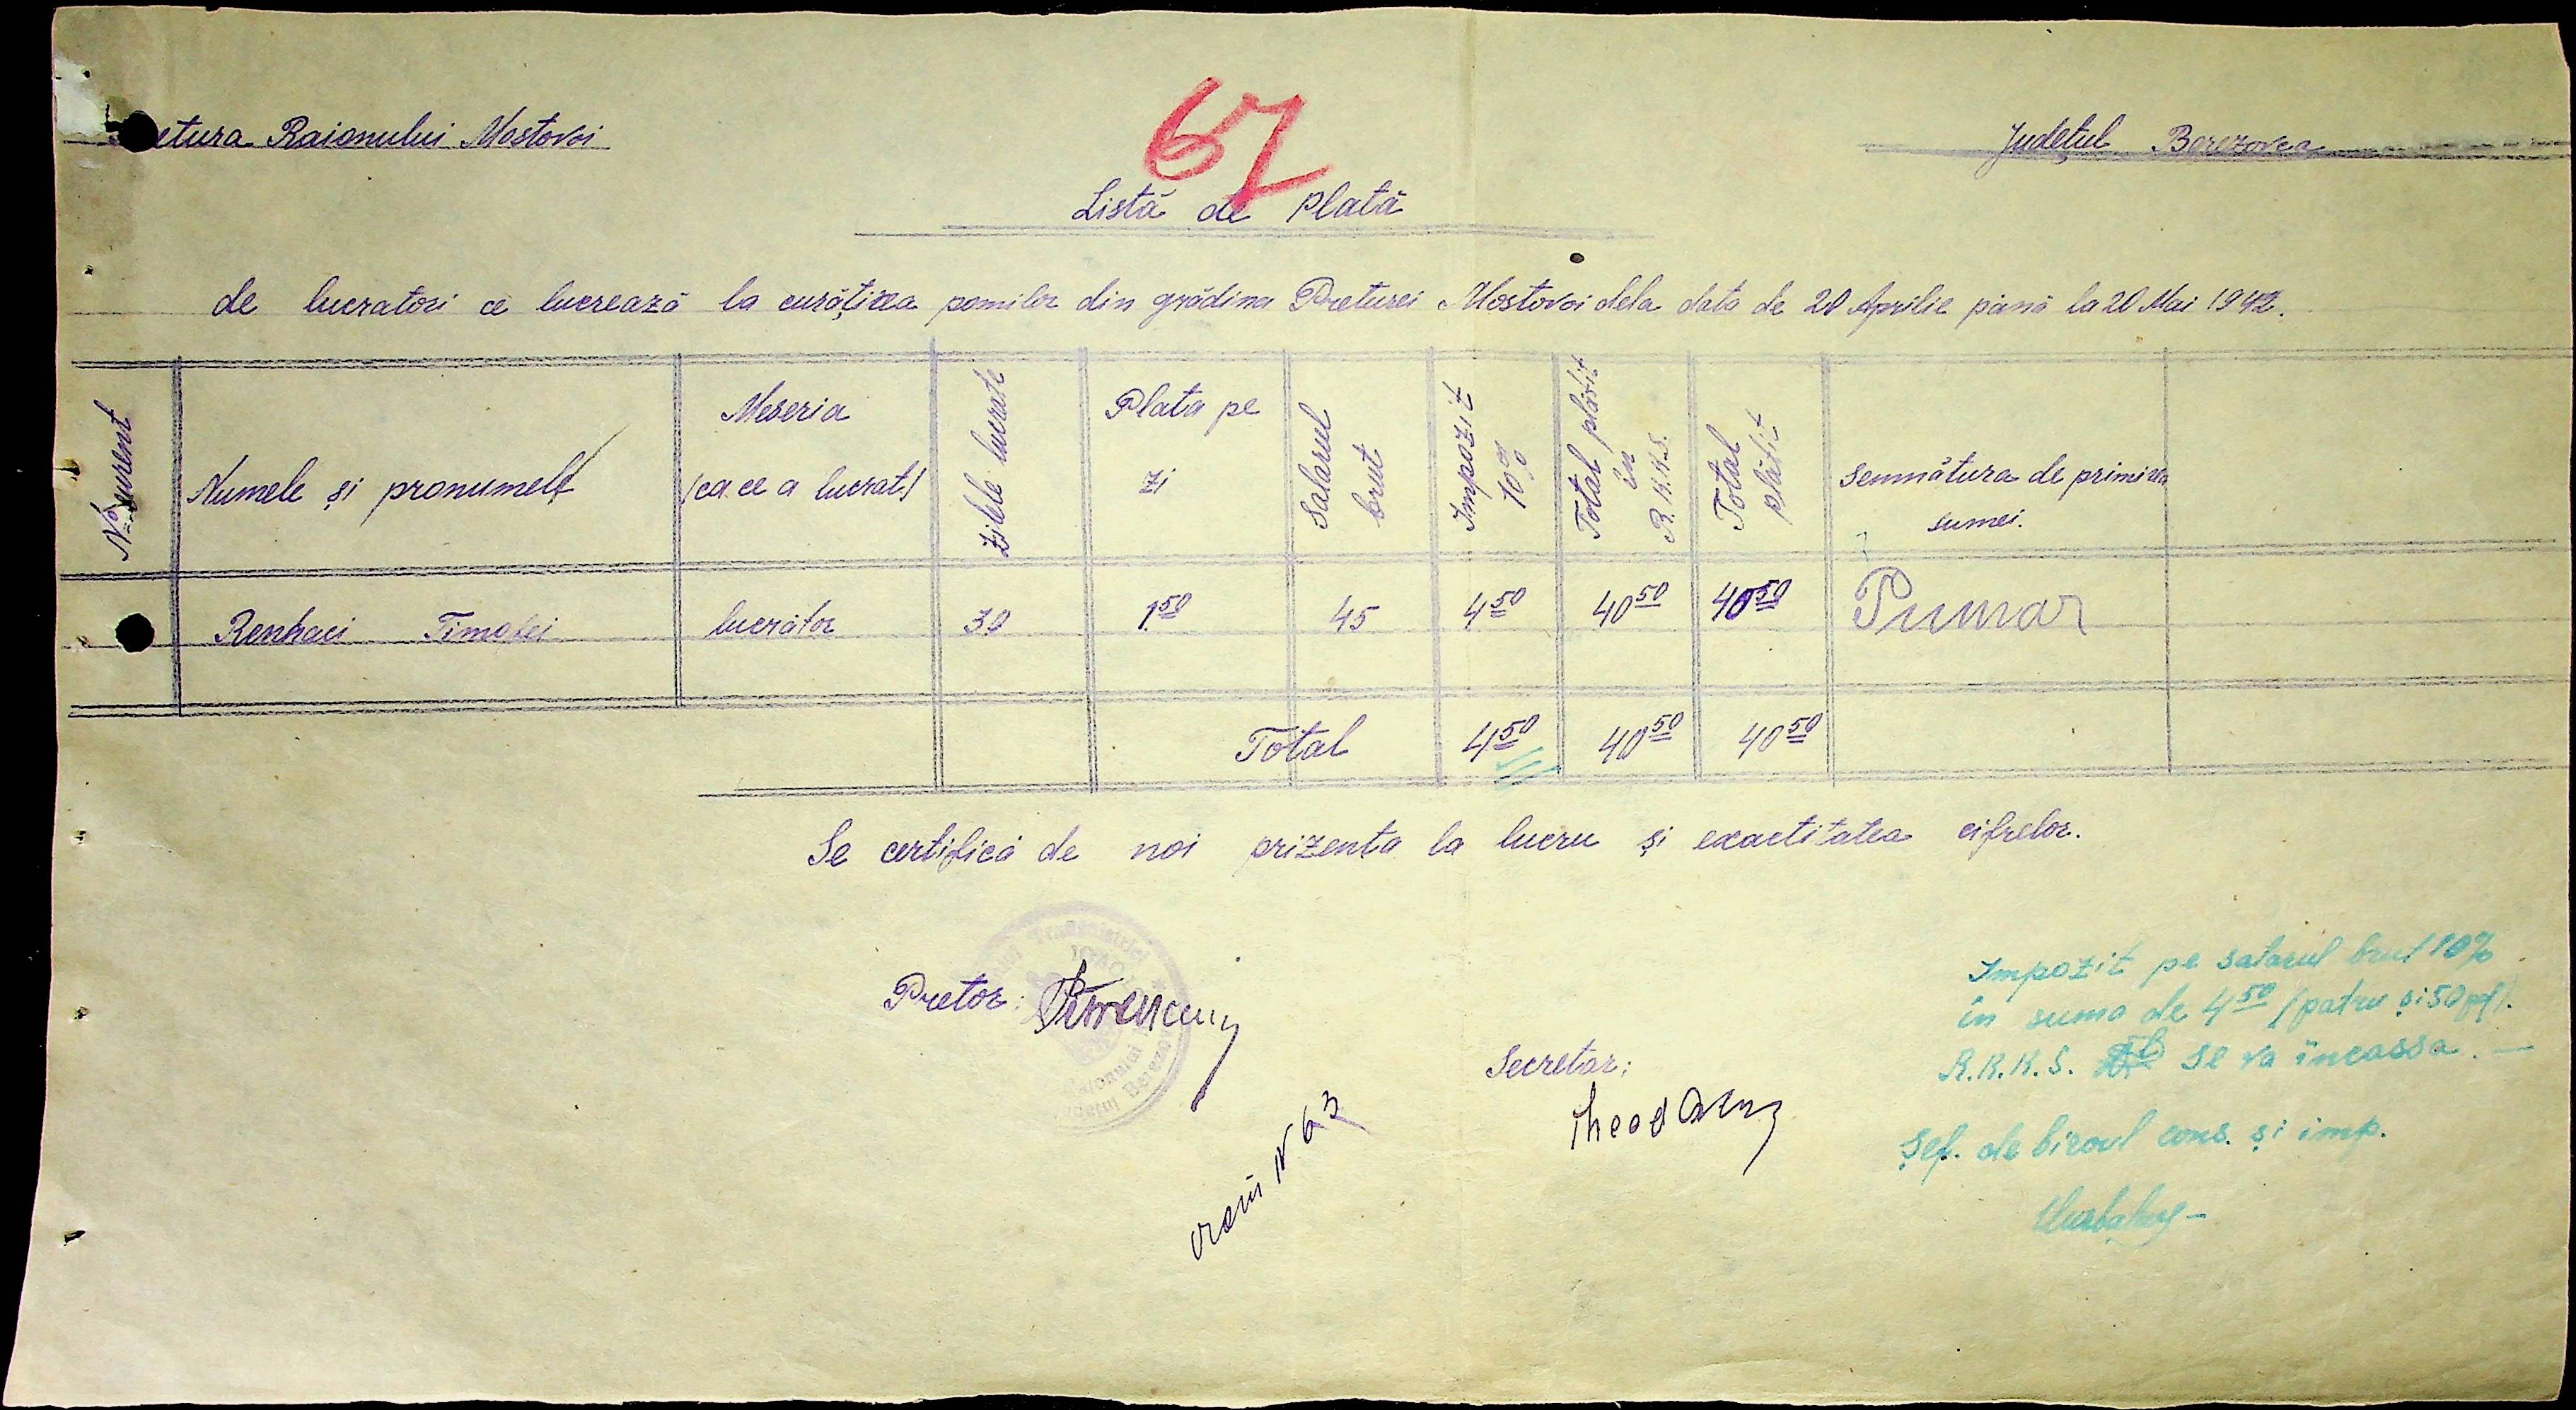 67
etura Raionului Mostovoi
Județul Berezovca
Listă de plată
de lucratori ce lucrează la curățirea pomilor din grădina Preturei Mostovoi dela data de 20 Aprilie până la 20 Mai 1942.
No curent
Numele și pronumele
Meseria
(ca ce a lucrat)
Zilele lucrate
Plata pe
zi
Salarul
brut
Impozit
10%
Total plătit
în
R.K.K.S.
Total
plătit
Semnătura de primirea
sumei.
Renhaci Timofei lucrător 30 1.50 45 4.50 40.50 40.50
Total 4.50 40.50 40.50
Se certifică de noi prizenta la lucru și exactitatea cifrelor.
Pretor:
Secretar:
Impozit pe salarul brut 10%
în suma de 4.50 (patru și 50 pf).
R.K.K.S. se va incassa. —
Șef. de biroul cons. și imp.
N 63